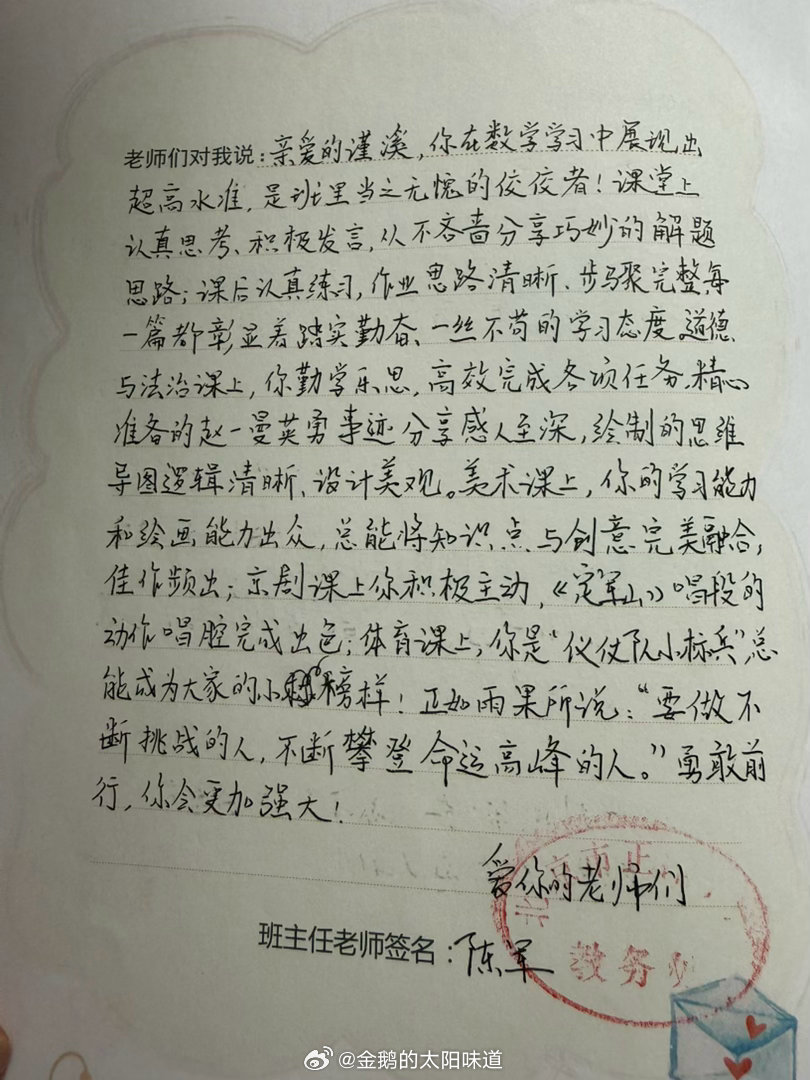 老师们对我说：亲爱的谨溪，你在数学学习中展现出
超高水准，是班里当之无愧的佼佼者！课堂上
认真思考、积极发言，从不吝啬分享巧妙的解题
思路；课后认真练习，作业思路清晰、步骤完整每
一篇都彰显着踏实勤奋、一丝不苟的学习态度 道德
与法治课上，你勤学乐思，高效完成各项任务，精心
准备的赵一曼英勇事迹分享感人至深，绘制的思维
导图逻辑清晰、设计美观。美术课上，你的学习能力
和绘画能力出众，总能将知识点与创意完美融合，
佳作频出；京剧课上你积极主动，《定军山》唱段的
动作唱腔完成出色；体育课上，你是“仪仗队小标兵”，总
能成为大家的小榜样！正如雨果所说：“要做不
断挑战的人，不断攀登命运高峰的人。”勇敢前
行，你会更加强大！
爱你的老师们
班主任老师签名：陈军
市正
教务
@金鹅的太阳味道